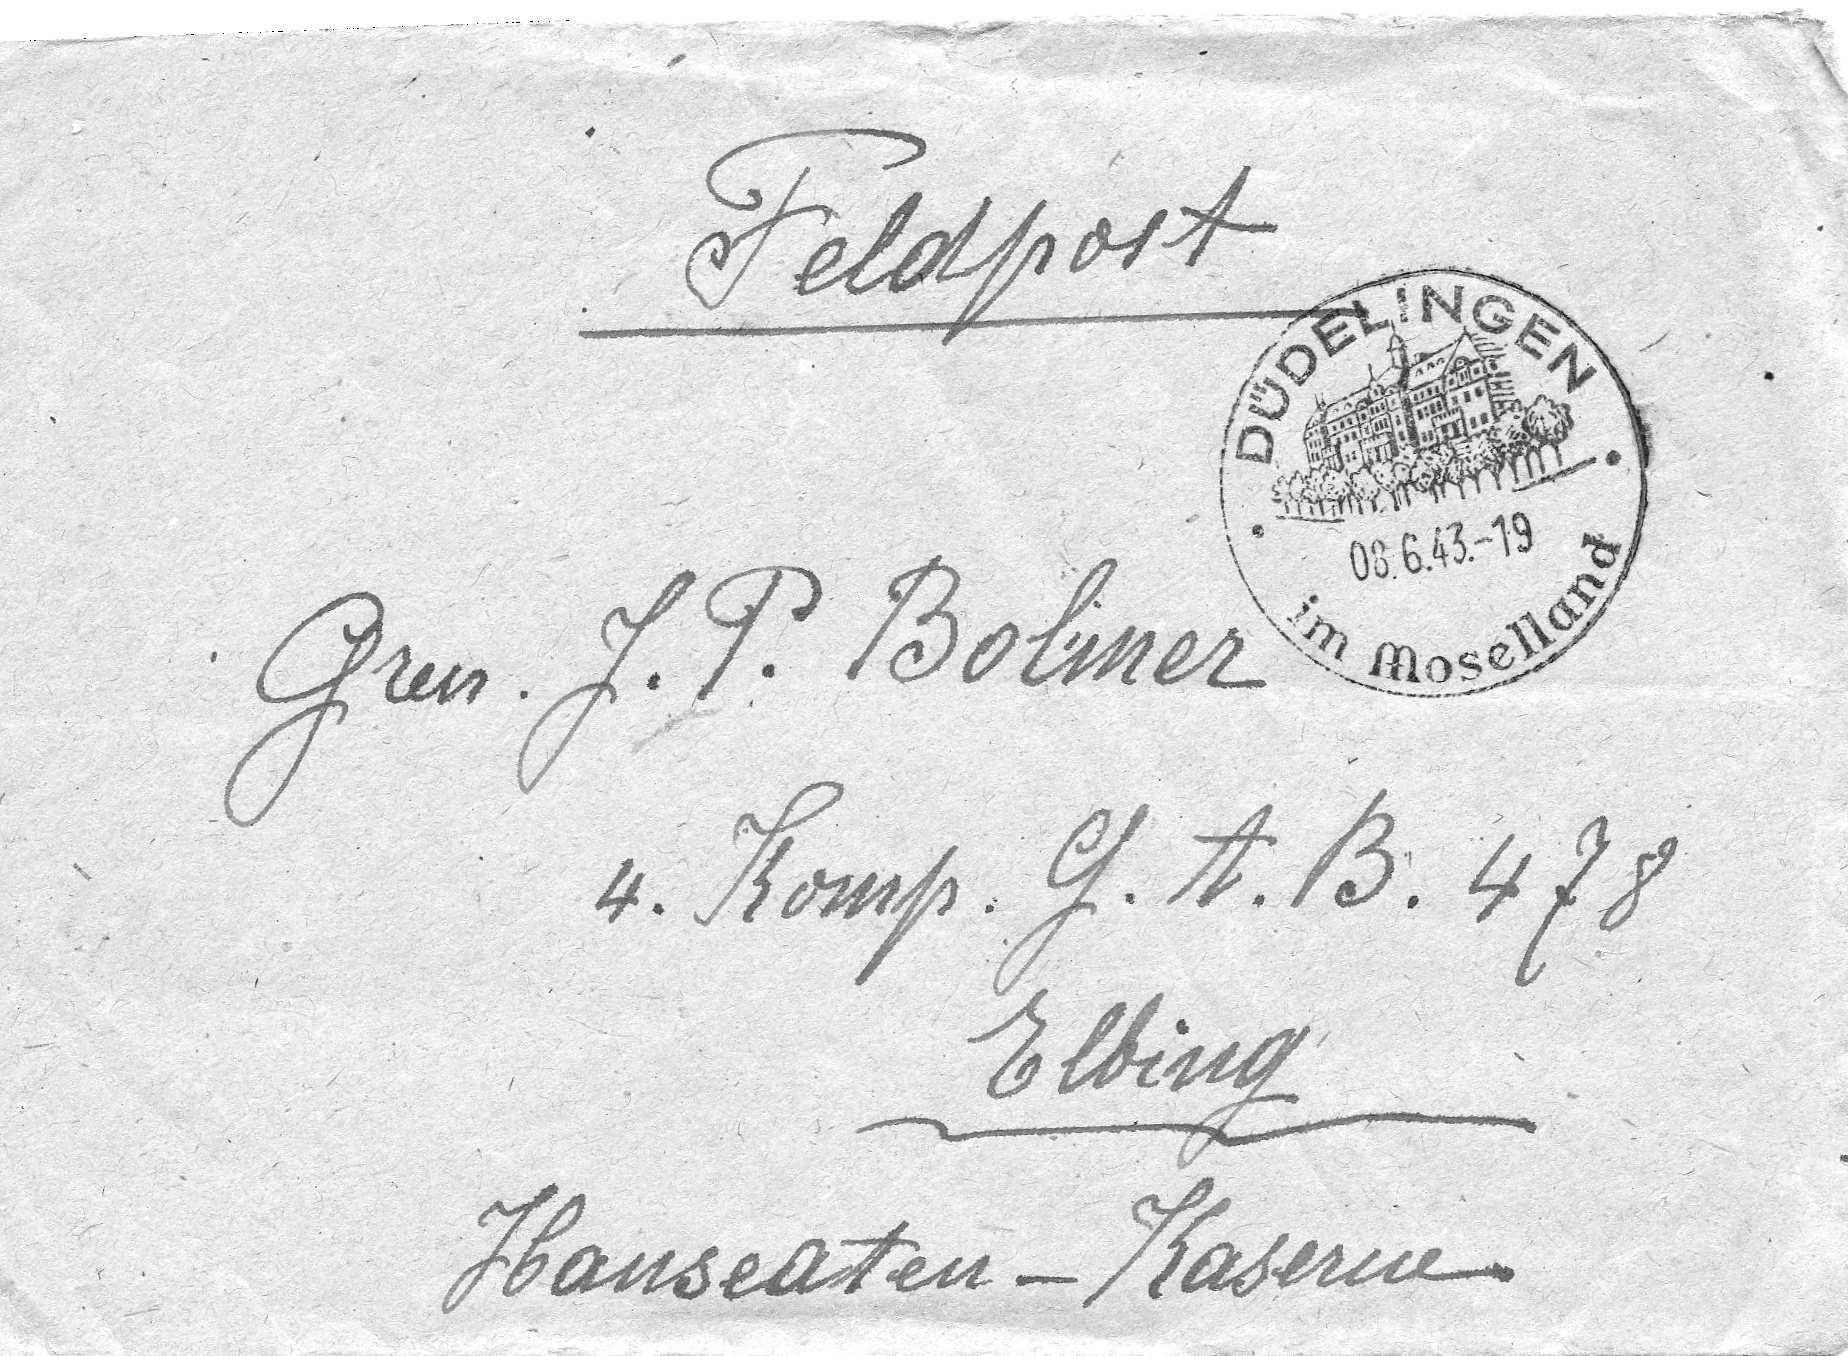 Feldpost
DÜDELINGEN
08.6.43.-19
im Moselland
Gren. J. P. Bolmer
4. Komp. G. A. B. 478
Elbing
Hanseaten - Kaserne